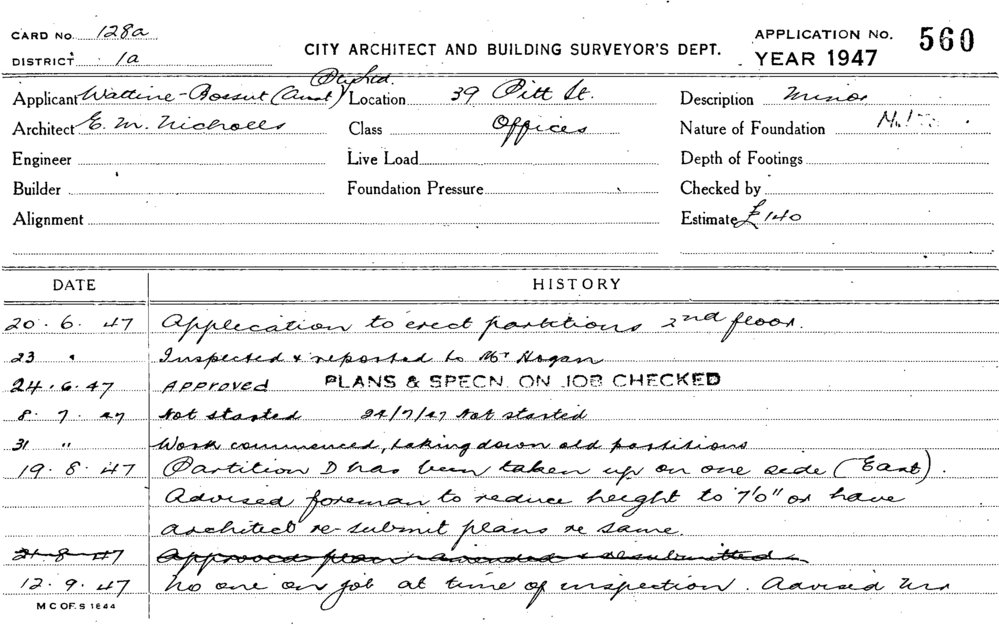 CARD No. 128a
DISTRICT 1a
CITY ARCHITECT AND BUILDING SURVEYOR'S DEPT.
APPLICATION No. 560
YEAR 1947
Applicant Wattine-Bossut (Aust) Pty Ltd. Location 39 Pitt St. Description Minor
Architect E. M. Nicholls Class Offices Nature of Foundation
Engineer Live Load Depth of Footings
Builder Foundation Pressure Checked by
Alignment Estimate £140
DATE HISTORY
20.6.47 Application to erect partitions 2nd floor.
23 " Inspected & reported to Mr Hogan
24.6.47 APPROVED PLANS & SPECN. ON JOB CHECKED
8.7.47 Not started 24/7/47 Not started
31 " Work commenced, taking down old partitions
19.8.47 Partition D has been taken up on one side (East).
Advised foreman to reduce height to 7'0" or have
architect re-submit plans re same.
21.8.47 Approved plan amended & resubmitted
12.9.47 No one on job at time of inspection. Advised Mr
M C OF. S 1844